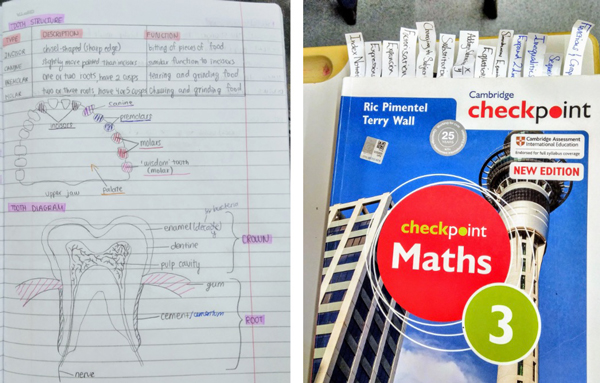 TEETH STRUCTURE
TYPE DESCRIPTION FUNCTION
INCISOR chisel-shaped (sharp edge) biting of pieces of food
CANINE slightly more pointed than incisors similar function to incisors
PREMOLAR one or two roots have 2 cusps tearing and grinding food
MOLAR two or three roots have 4 or 5 cusps chewing and grinding food
canine
premolars
incisors
molars
'wisdom' tooth
(molar)
palate
upper jaw
TEETH DIAGRAM
enamel
dentine
pulp cavity
CROWN
gum
cement/cementum
ROOT
nerve
Index
Expressions
Expansion
Factorisation
Changing the Subject
Substitution
Expand
Inequalities
Ric Pimentel
Terry Wall
25
Cambridge
checkpoint
Cambridge Assessment
International Education
Endorsed for full syllabus coverage
NEW EDITION
checkpoint
Maths
3